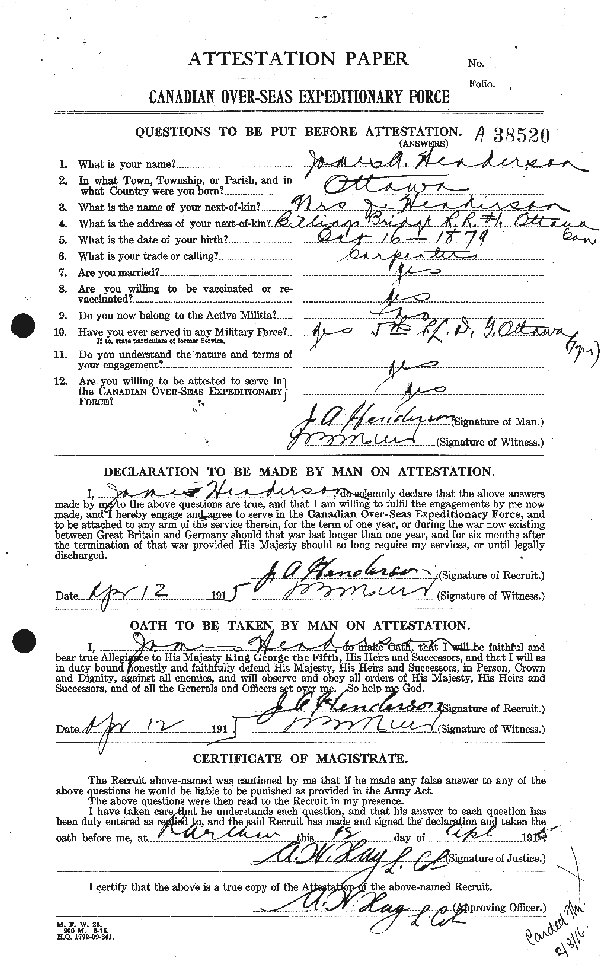 ATTESTATION PAPER
No.
Folio.
CANADIAN OVER-SEAS EXPEDITIONARY FORCE
QUESTIONS TO BE PUT BEFORE ATTESTATION. A 38520
(ANSWERS)
1. What is your name? James A. Henderson
2. In what Town, Township, or Parish, and in
what Country were you born? Ottawa
3. What is the name of your next-of-kin? Mrs J. Henderson
4. What is the address of your next-of-kin? Billings Bridge R.R. #1, Ottawa
Can
5. What is the date of your birth? Oct 16 - 1879
6. What is your trade or calling? Carpenter
7. Are you married? yes
8. Are you willing to be vaccinated or re-
vaccinated? yes
9. Do you now belong to the Active Militia? no
10. Have you ever served in any Military Force? yes 5th D. G. Ottawa
If so, state particulars of former Service.
11. Do you understand the nature and terms of
your engagement? yes
12. Are you willing to be attested to serve in
the CANADIAN OVER-SEAS EXPEDITIONARY
FORCE? yes
J A Henderson (Signature of Man.)
(Signature of Witness.)
DECLARATION TO BE MADE BY MAN ON ATTESTATION.
I, James Henderson, do solemnly declare that the above answers
made by me to the above questions are true, and that I am willing to fulfil the engagements by me now
made, and I hereby engage and agree to serve in the Canadian Over-Seas Expeditionary Force, and
to be attached to any arm of the service therein, for the term of one year, or during the war now existing
between Great Britain and Germany should that war last longer than one year, and for six months after
the termination of that war provided His Majesty should so long require my services, or until legally
discharged.
J A Henderson (Signature of Recruit.)
Date Apr 12 1915 (Signature of Witness.)
OATH TO BE TAKEN BY MAN ON ATTESTATION.
I, James Henderson, do make Oath, that I will be faithful and
bear true Allegiance to His Majesty King George the Fifth, His Heirs and Successors, and that I will as
in duty bound honestly and faithfully defend His Majesty, His Heirs and Successors, in Person, Crown
and Dignity, against all enemies, and will observe and obey all orders of His Majesty, His Heirs and
Successors, and of all the Generals and Officers set over me. So help me God.
J A Henderson (Signature of Recruit.)
Date Apr 12 1915 (Signature of Witness.)
CERTIFICATE OF MAGISTRATE.
The Recruit above-named was cautioned by me that if he made any false answer to any of the
above questions he would be liable to be punished as provided in the Army Act.
The above questions were then read to the Recruit in my presence.
I have taken care that he understands each question, and that his answer to each question has
been duly entered as replied to, and the said Recruit has made and signed the declaration and taken the
oath before me, at this 12 day of Apl 1915
A. W. Hay L. Col (Signature of Justice.)
I certify that the above is a true copy of the Attestation of the above-named Recruit.
A. W. Hay L Col (Approving Officer.)
M. F. W. 23.
H.Q. 1772-39-241.
Carded
2/3/16